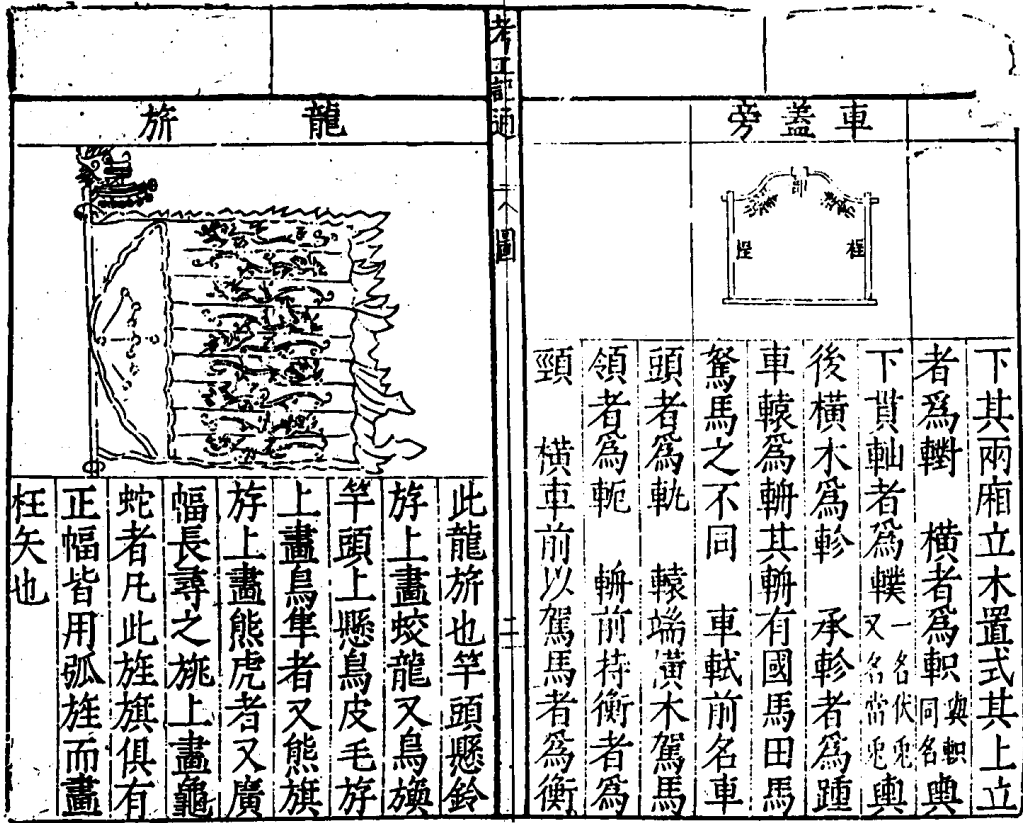 車蓋旁
下其兩廂立木置式其上立
者爲轛 橫者爲軹與軹同名輿
下貫軸者爲轐一名伏兎又名當兎輿
後橫木爲軫 承軫者爲踵
車轅爲輈其輈有國馬田馬
駑馬之不同 車軾前名車
頭者爲軓 轅端橫木駕馬
領者爲軛 輈前持衡者爲
頸 橫車前以駕馬者爲衡
考工記通
圖
二
龍旂
此龍旂也竿頭懸鈴
斿上畫蛟龍又鳥旟
竿頭上懸鳥皮毛斿
上畫鳥隼者又熊旗
斿上畫熊虎者又廣
幅長尋之旐上畫龜
蛇者凡此旌旗俱有
正幅皆用弧旌而畫
枉矢也